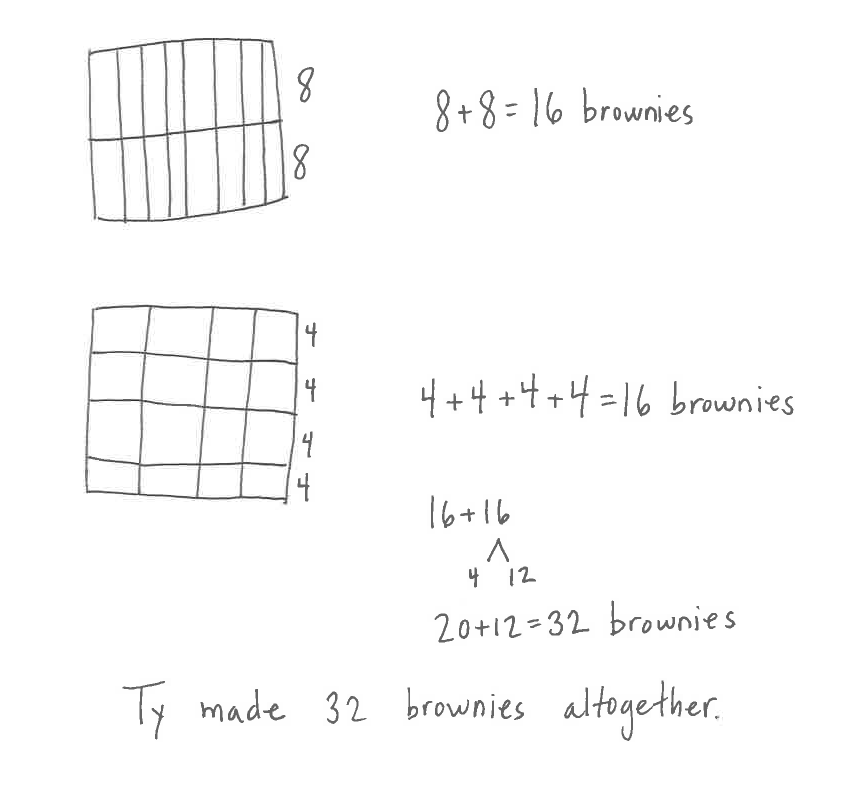 8
8
8+8=16 brownies
4
4
4
4
4+4+4+4=16 brownies
16+16
4 12
20+12=32 brownies
Ty made 32 brownies altogether.